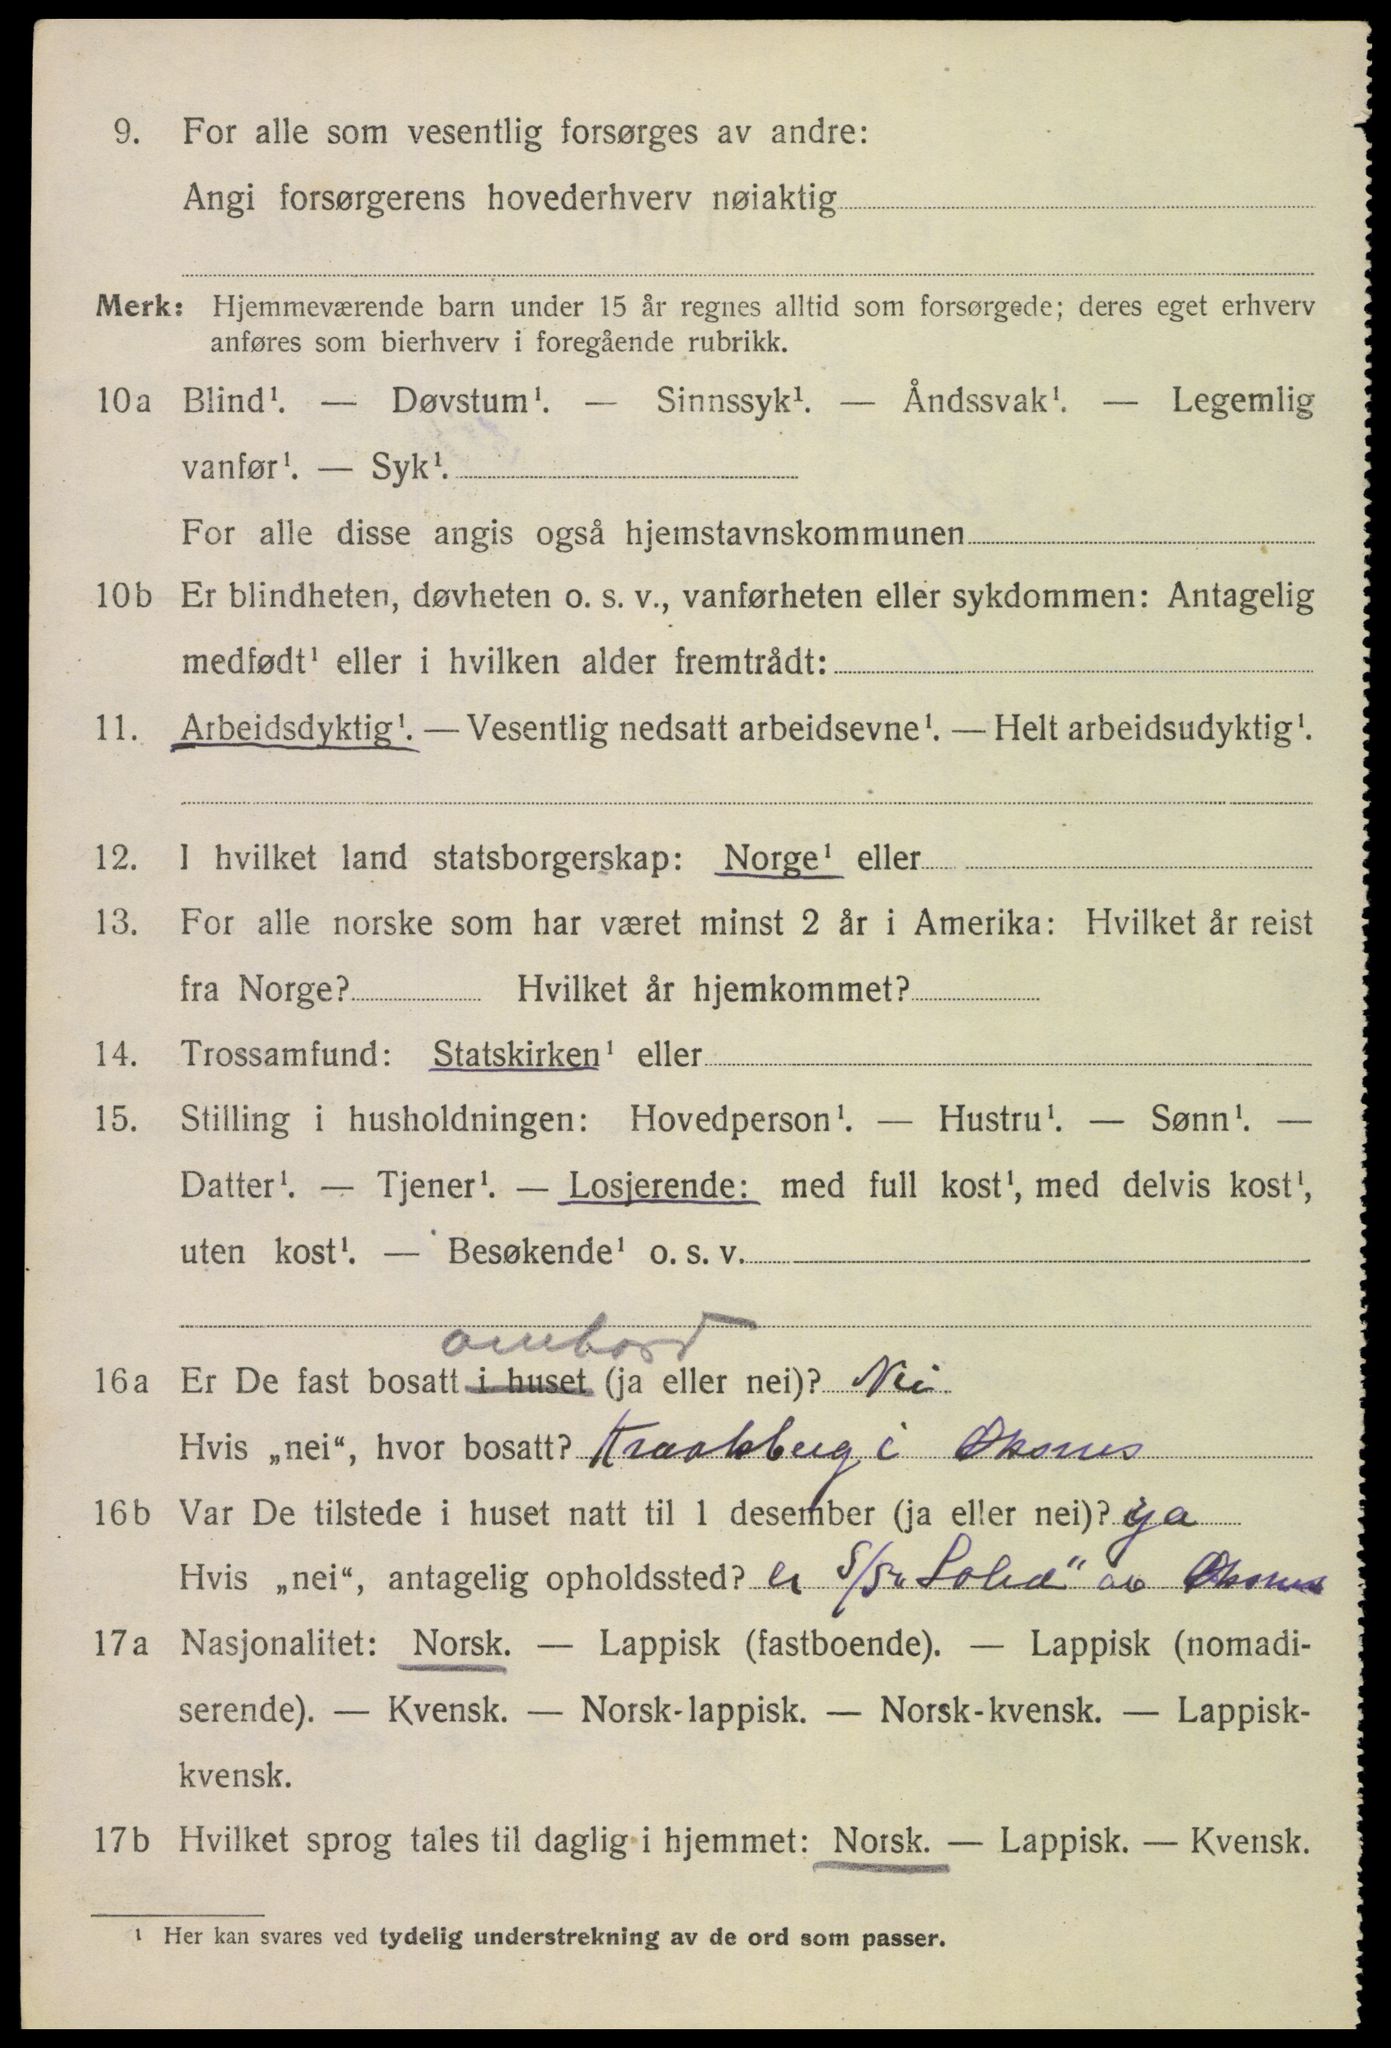 9. For alle som vesentlig forsørges av andre:
Angi forsørgerens hovederhverv nøiaktig
Merk: Hjemmeværende barn under 15 år regnes alltid som forsørgede; deres eget erhverv
anføres som bierhverv i foregående rubrikk.
10a Blind¹. — Døvstum¹. — Sinnssyk¹. — Åndssvak¹. — Legemlig
vanfør¹. — Syk¹.
For alle disse angis også hjemstavnskommunen
10b Er blindheten, døvheten o. s. v., vanførheten eller sykdommen: Antagelig
medfødt¹ eller i hvilken alder fremtrådt:
11. Arbeidsdyktig¹. — Vesentlig nedsatt arbeidsevne¹. — Helt arbeidsudyktig¹.
12. I hvilket land statsborgerskap: Norge¹ eller
13. For alle norske som har været minst 2 år i Amerika: Hvilket år reist
fra Norge? Hvilket år hjemkommet?
14. Trossamfund: Statskirken¹ eller
15. Stilling i husholdningen: Hovedperson¹. — Hustru¹. — Sønn¹. —
Datter¹. — Tjener¹. — Losjerende: med full kost¹, med delvis kost¹,
uten kost¹. — Besøkende¹ o. s. v.
ombord
16a Er De fast bosatt i huset (ja eller nei)? Nei
Hvis „nei“, hvor bosatt? Kraakberg i Øksnes
16b Var De tilstede i huset natt til 1 desember (ja eller nei)? ja
Hvis „nei“, antagelig opholdssted? er S/S „ " av Øksnes
17a Nasjonalitet: Norsk. — Lappisk (fastboende). — Lappisk (nomadi-
serende). — Kvensk. — Norsk-lappisk. — Norsk-kvensk. — Lappisk-
kvensk.
17b Hvilket sprog tales til daglig i hjemmet: Norsk. — Lappisk. — Kvensk.
¹ Her kan svares ved tydelig understrekning av de ord som passer.